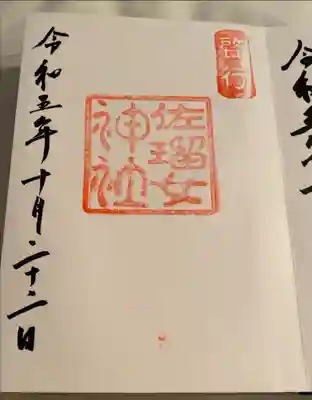 令和五
啓行
佐瑠女
神社
令和五年十月二十二日